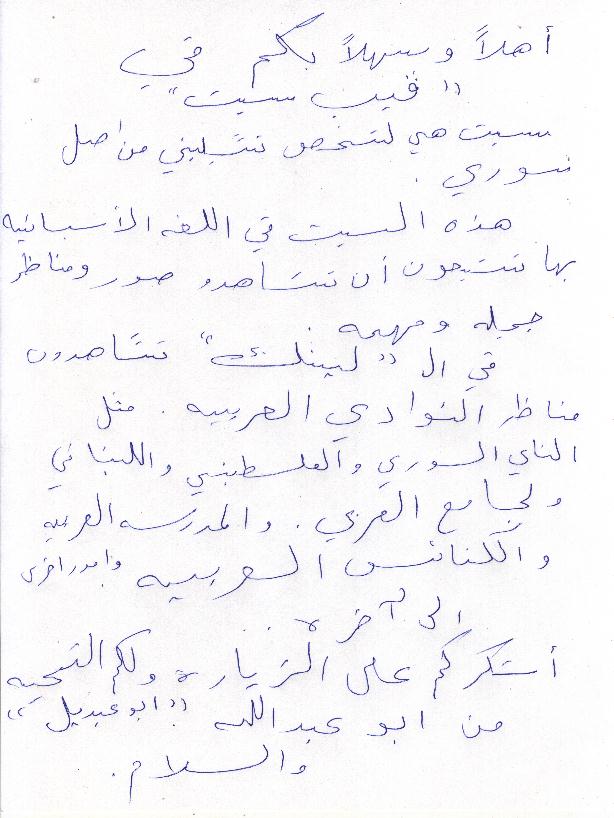 أهلاً وسهلاً بكم في
"ڤيب سيت"
سيت هي لشخص تشيليني من اصل
سوري .
هذه السيت في اللغه الأسبانيه
بها تستيعون أن تشاهدو صور ومناظر
جميله ومهمه .
في ال "لينك" تشاهدون
مناظر النوادي العربيه . مثل
الناي السوري والفلسطيني واللبناني
ولجامع العربي . والمدرسه العربيه
والكنائس العربيه وامور اخرى
الى آخره .
أشكركم على الزياره ولكم التحيه
من ابو عبدالله "ابو عبديل"
والسلام .